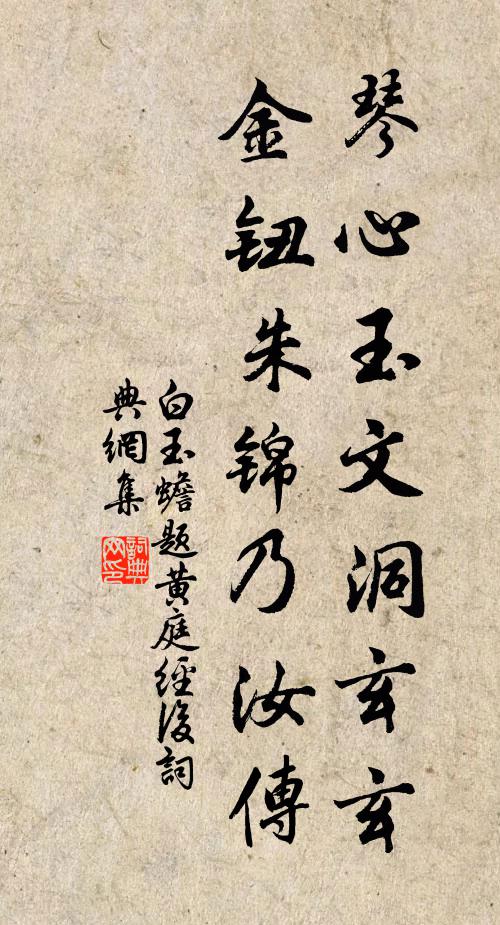 琴心玉文洞玄玄
金鈕朱錦乃汝傳
白玉蟾題黃庭經後詞
典網集
詞典網印